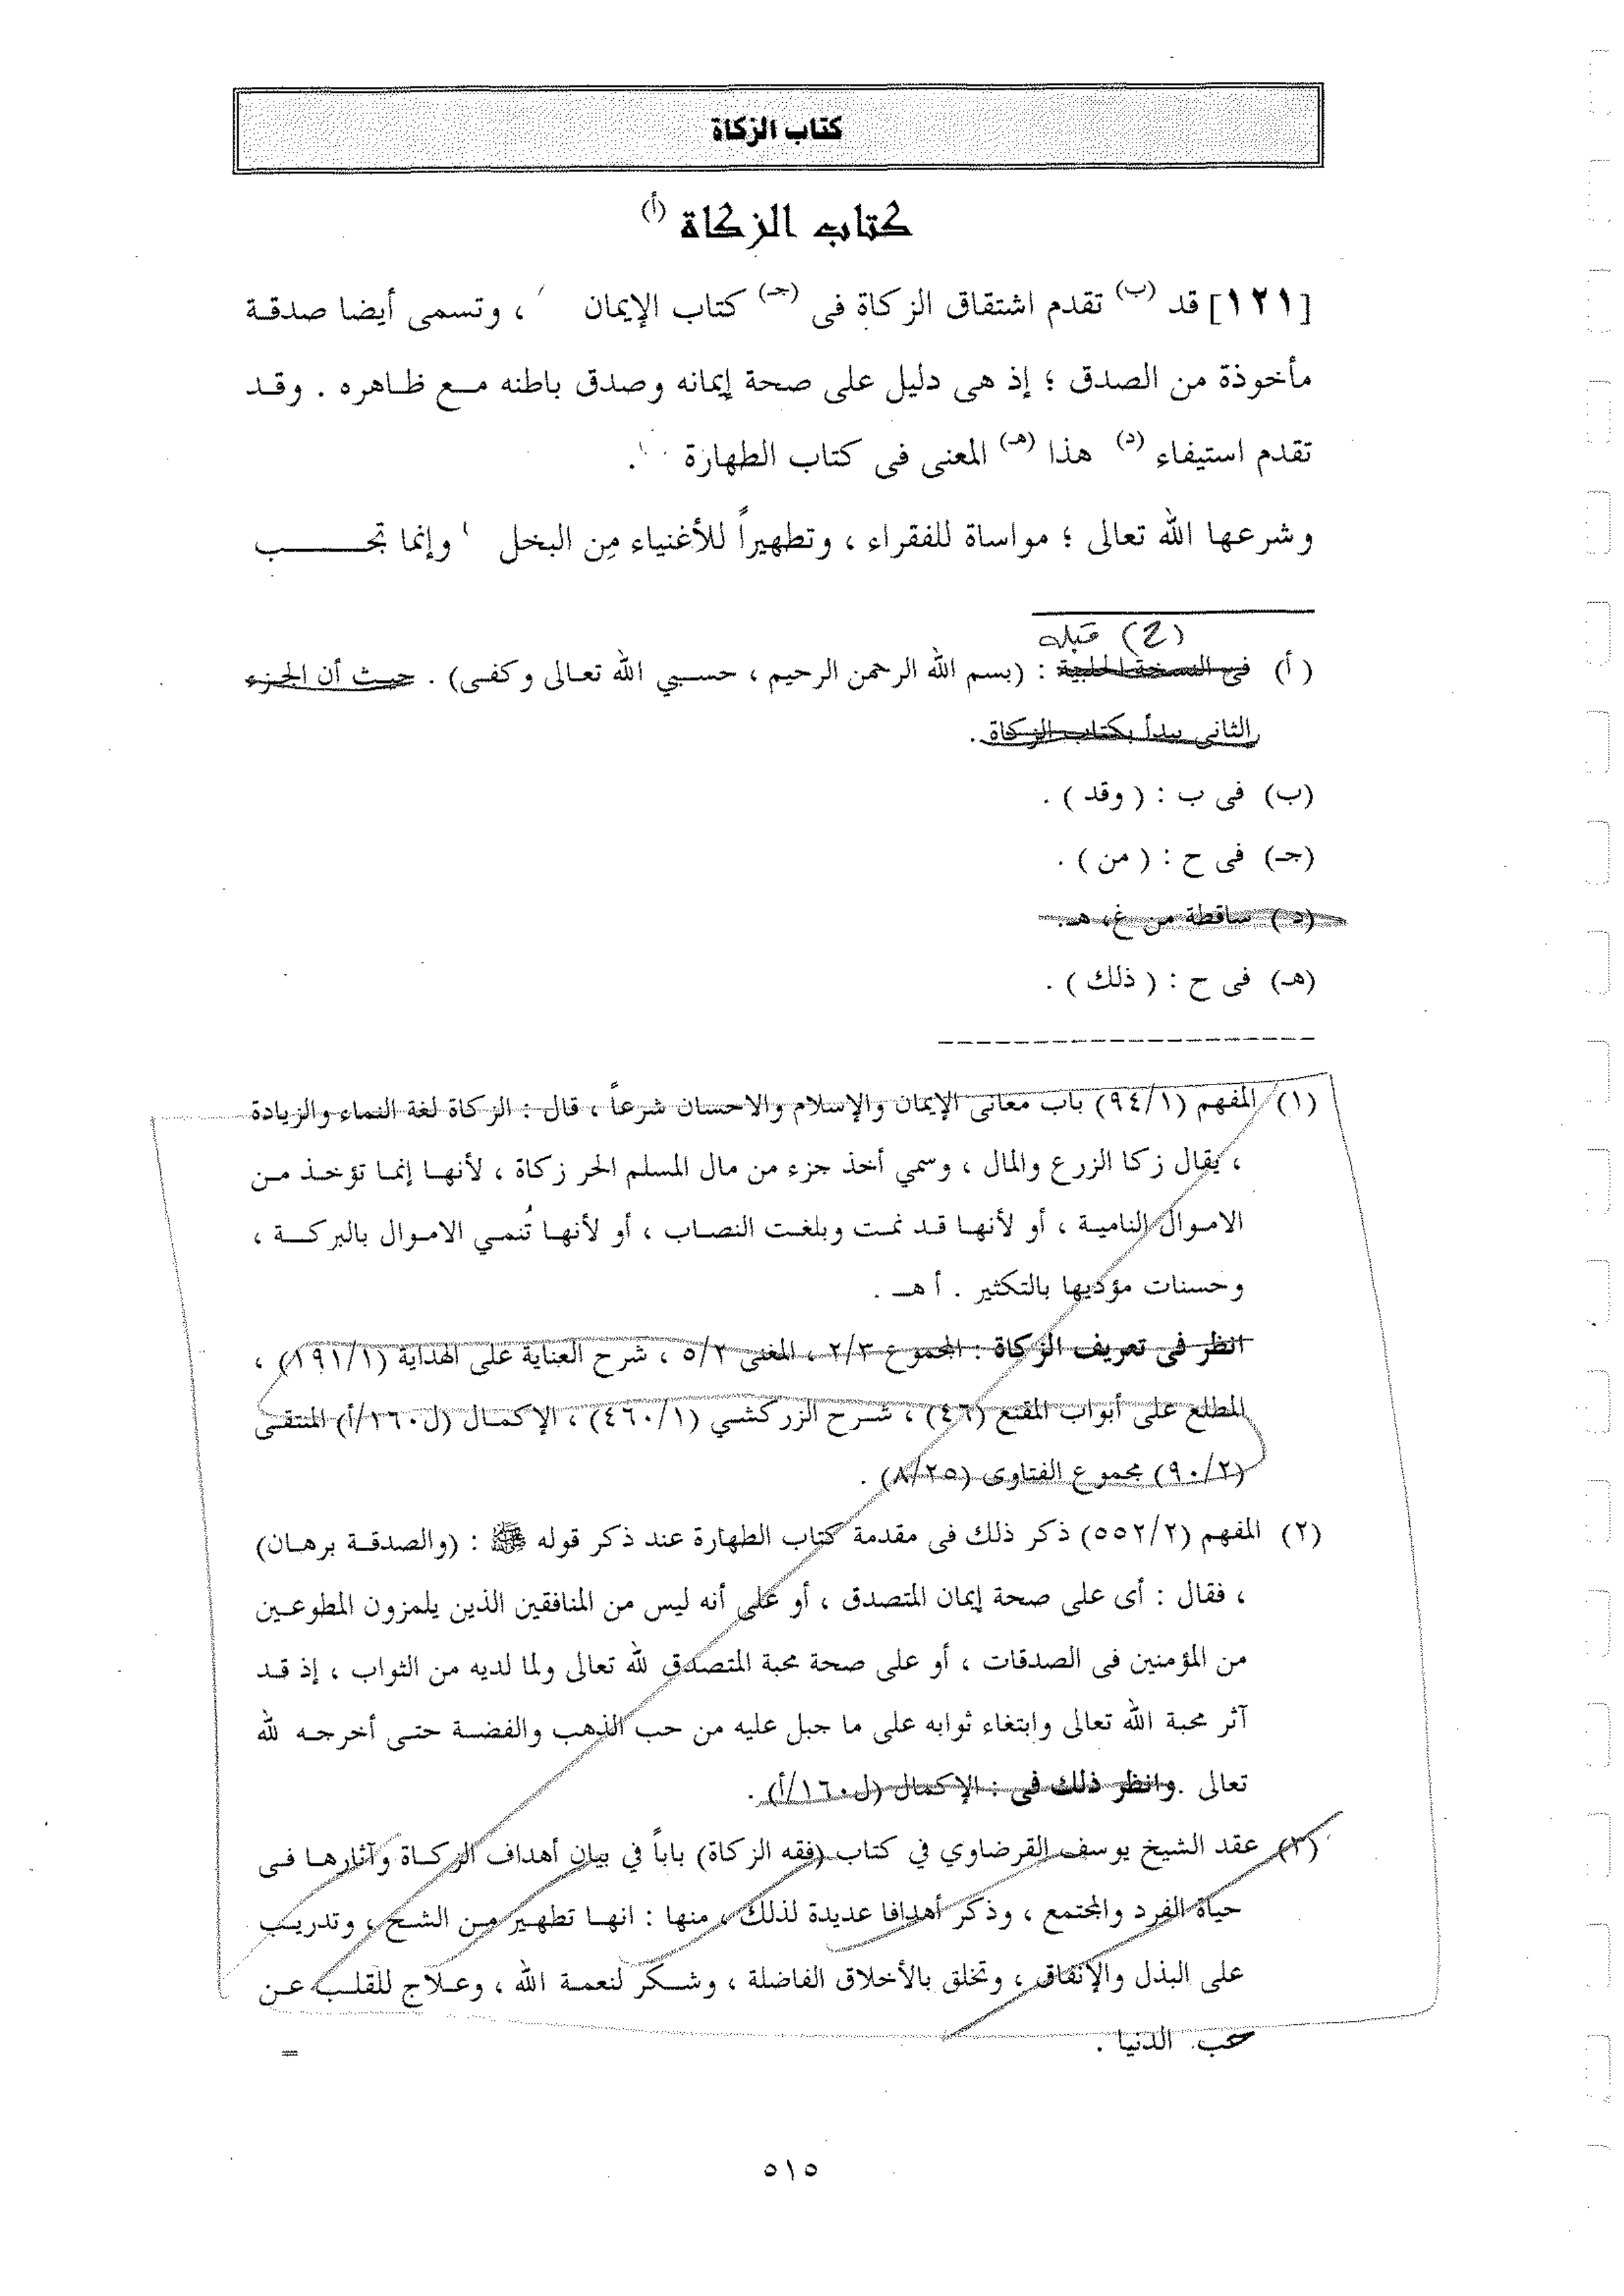 كتاب الزكاة
كتاب الزكاة (أ)
[١٢١] قد (ب) تقدم اشتقاق الزكاة فى (جـ) كتاب الإيمان ، وتسمى أيضا صدقة
مأخوذة من الصدق ؛ إذ هى دليل على صحة إيمانه وصدق باطنه مع ظاهره . وقد
تقدم استيفاء (د) هذا (هـ) المعنى فى كتاب الطهارة .
وشرعها الله تعالى ؛ مواساة للفقراء ، وتطهيراً للأغنياء مِن البخل وإنما تجب
(ح) قبله
(أ) فى النسخة الحلبية : (بسم الله الرحمن الرحيم ، حسبي الله تعالى وكفى) . حيث أن الجزء
الثانى يبدأ بكتاب الزكاة .
(ب) فى ب : ( وقد ) .
(جـ) فى ح : ( من ) .
(د) ساقطة من غ، هـ.
(هـ) فى ح : ( ذلك ) .
(١) المفهم (٩٤/١) باب معانى الإيمان والإسلام والاحسان شرعاً ، قال : الزكاة لغة النماء والزيادة
، يقال زكا الزرع والمال ، وسمي أخذ جزء من مال المسلم الحر زكاة ، لأنها إنما تؤخذ من
الاموال النامية ، أو لأنها قد نمت وبلغت النصاب ، أو لأنها تُنمي الاموال بالبركة ،
وحسنات مؤديها بالتكثير . أ هـ .
انظر فى تعريف الزكاة : المجموع ٢/٣ ، المغنى ٥/٢ ، شرح العناية على الهداية (١٩١/١) ،
المطلع على أبواب المقنع (٤٦) ، شرح الزركشي (٤٦٠/١) ، الإكمال (ل١٦٠/أ) المنتقى
(٩٠/٢) مجموع الفتاوى (٨/٢٥) .
(٢) المفهم (٥٥٢/٢) ذكر ذلك فى مقدمة كتاب الطهارة عند ذكر قوله ﷺ : (والصدقة برهان)
، فقال : أى على صحة إيمان المتصدق ، أو على أنه ليس من المنافقين الذين يلمزون المطوعين
من المؤمنين فى الصدقات ، أو على صحة محبة المتصدق لله تعالى ولما لديه من الثواب ، إذ قد
آثر محبة الله تعالى وابتغاء ثوابه على ما جبل عليه من حب الذهب والفضة حتى أخرجه لله
تعالى .وانظر ذلك فى : الإكمال (ل١٦٠/أ) .
(٣) عقد الشيخ يوسف القرضاوي في كتاب (فقه الزكاة) باباً في بيان أهداف الزكاة وآثارها فى
حياة الفرد والمجتمع ، وذكر أهدافا عديدة لذلك ، منها : انها تطهير من الشح ، وتدريب
على البذل والإنفاق ، وتخلق بالأخلاق الفاضلة ، وشكر لنعمة الله ، وعلاج للقلب عن
حب الدنيا .
=
٥١٥